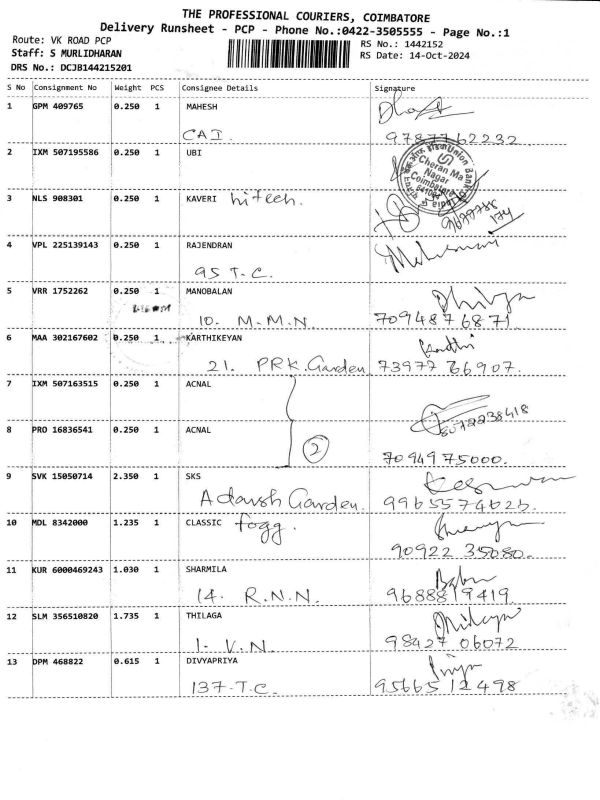 THE PROFESSIONAL COURIERS, COIMBATORE
Delivery Runsheet - PCP - Phone No.:0422-3505555 - Page No.:1
Route: VK ROAD PCP
RS No.: 1442152
Staff: S MURLIDHARAN
RS Date: 14-Oct-2024
DRS No.: DCJB144215201
S No Consignment No Weight PCS Consignee Details Signature
1 GPM 409765 0.250 1 MAHESH
CAI. 9787762232
2 IXM 507195586 0.250 1 UBI
Union Bank of India
Cheran Ma Nagar
Coimbatore
3 NLS 908301 0.250 1 KAVERI hitech.
4 VPL 225139143 0.250 1 RAJENDRAN
95 T.C.
5 VRR 1752262 0.250 1 MANOBALAN
10. M.M.N 7094876871
6 MAA 302167602 0.250 1 KARTHIKEYAN
21. PRK.Garden 73977 66907.
7 IXM 507163515 0.250 1 ACNAL
8072238418
8 PRO 16836541 0.250 1 ACNAL
2
70949 75000.
9 SVK 15050714 2.350 1 SKS
Adarsh Garden. 9965574626.
10 MDL 8342000 1.235 1 CLASSIC fogg.
90922 35080.
11 KUR 6000469243 1.030 1 SHARMILA Babu
14. R.N.N. 9688819419.
12 SLM 356510820 1.735 1 THILAGA
1. V.N 98427 06072
13 DPM 468822 0.615 1 DIVYAPRIYA Priya
137-T.C. 95665 12498